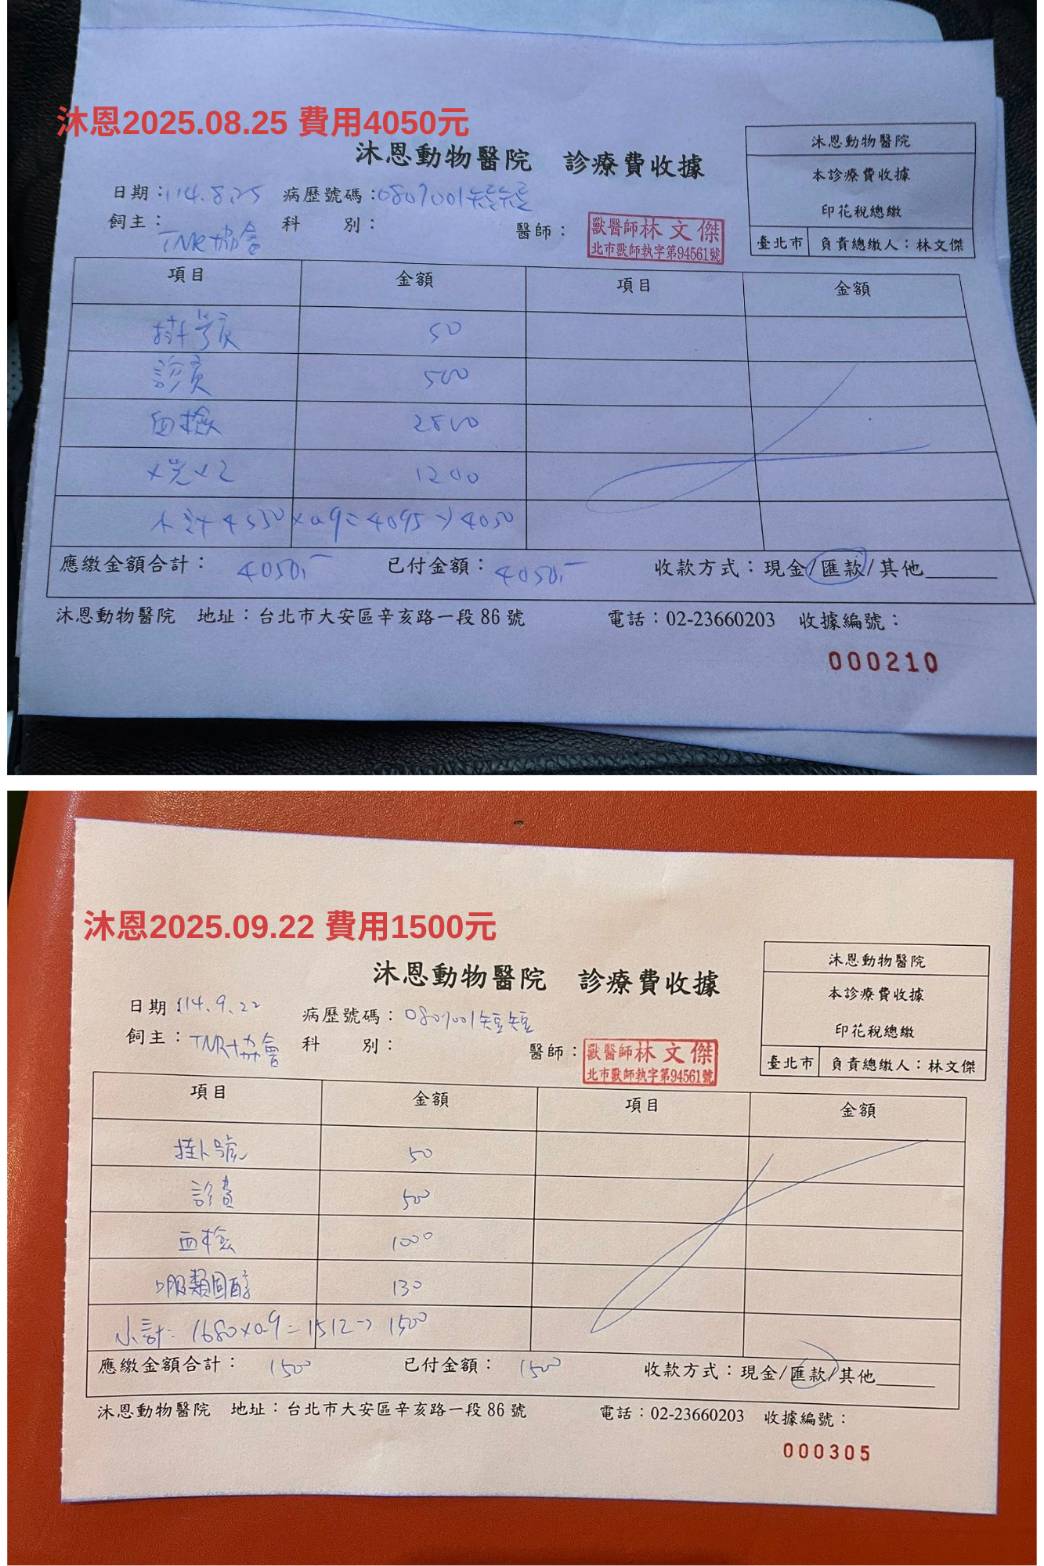 沐恩2025.08.25 費用4050元
沐恩動物醫院 診療費收據
沐恩動物醫院
本診療費收據
印花稅總繳
臺北市 負責總繳人：林文傑
日期：114.8.25 病歷號碼：0809001短短
飼主：TNR協會 科 別： 醫師：
獸醫師林文傑
北市獸師執字第94561號
項目 金額 項目 金額
掛號 50
診費 500
血檢 2800
X光x2 1200
小計 4550x0.9=4095→4050
應繳金額合計：4050.- 已付金額：4050.- 收款方式：現金/匯款/其他
沐恩動物醫院 地址：台北市大安區辛亥路一段86號 電話：02-23660203 收據編號：
000210
沐恩2025.09.22 費用1500元
沐恩動物醫院 診療費收據
沐恩動物醫院
本診療費收據
印花稅總繳
臺北市 負責總繳人：林文傑
日期：114.9.22 病歷號碼：0809001短短
飼主：TNR協會 科 別： 醫師：
獸醫師林文傑
北市獸師執字第94561號
項目 金額 項目 金額
掛號 50
診費 500
血檢 1000
口服類固醇 130
小計=1680x0.9=1512→1500
應繳金額合計：1500 已付金額：1500 收款方式：現金/匯款/其他
沐恩動物醫院 地址：台北市大安區辛亥路一段86號 電話：02-23660203 收據編號：
000305